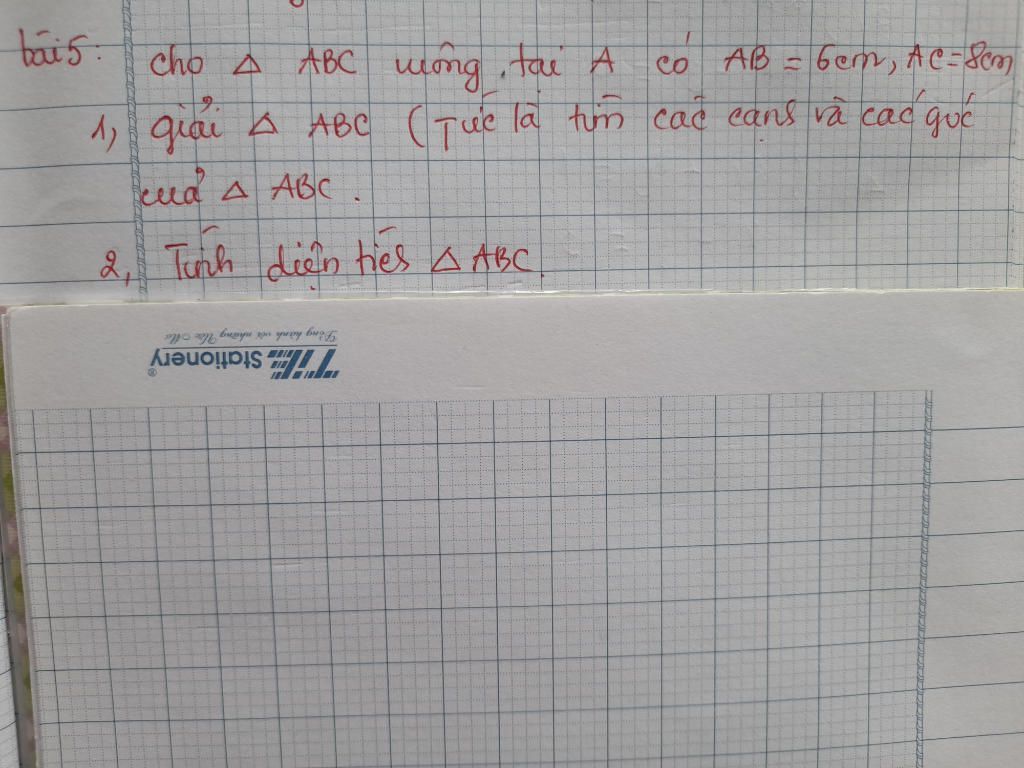 bài 5: cho △ ABC vuông tại A có AB = 6cm, AC = 8cm
1, giải △ ABC (Tức là tìm các cạnh và các góc
của △ ABC.
2, Tính diện tích △ ABC.
Đồng hành với những Ước Mơ
TL Stationery®